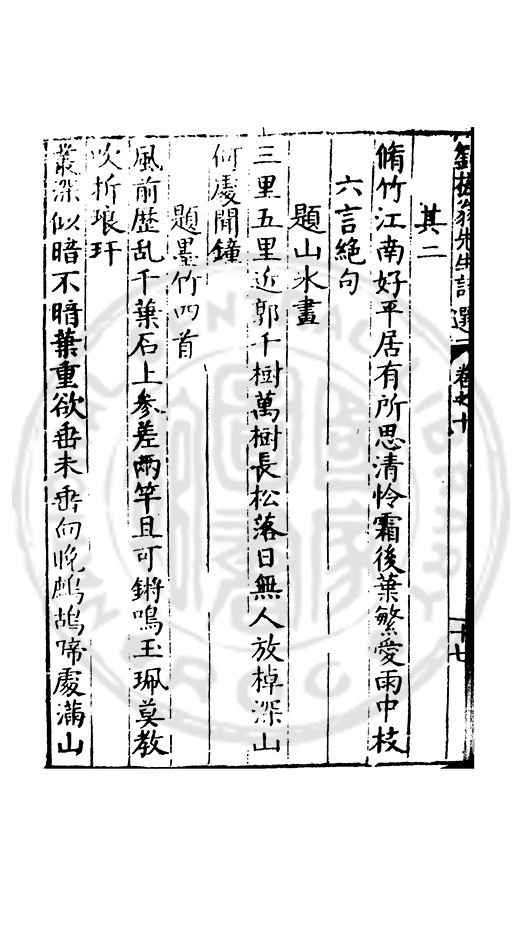 其二
脩竹江南好平居有所思清怜霜後葉繁愛雨中枝
六言絶句
題山水畫
三里五里近郭千樹萬樹長松落日無人放棹深山
何處聞鐘
題墨竹四首
風前歴乱千葉石上參差兩竿且可鏘鳴玉珮莫教
吹折琅玕
叢深似暗不暗葉重欲垂未垂向晚鷓鴣啼處滿山
先生詩選
卷之十
十七